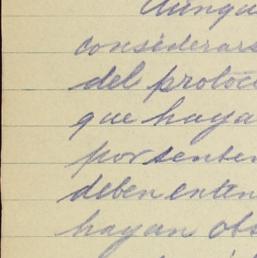 Aunqu
considerars
del protoc
que haya
por senten
deben enten
hayan obs